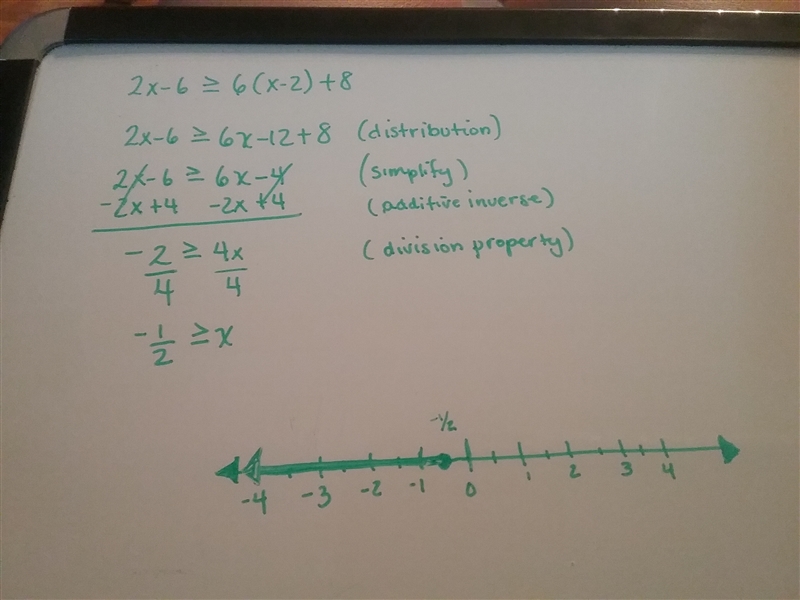 2x-6 ≥ 6(x-2)+8
2x-6 ≥ 6x-12+8 (distribution)
2x-6 ≥ 6x-4 (simplify)
-2x+4 -2x+4 (additive inverse)
-2/4 ≥ 4x/4 (division property)
-1/2 ≥ x
-1/2
-4 -3 -2 -1 0 1 2 3 4